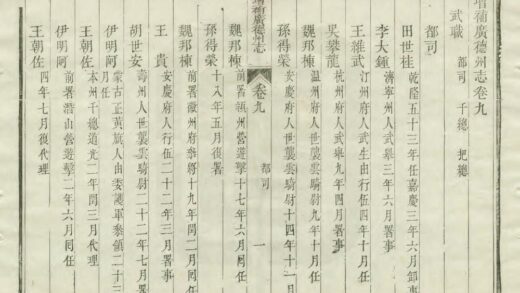 增補廣德州志卷九
武職 都司 千總 把總
都司
田世桂 乾隆五十三年任嘉慶三年六月卸事
李大鍾 濟寧州人武舉三年六月任
王維武 汀州府人武生由行伍四年十月任
吳攀龍 杭州府人武舉九年四月署事
魏邦棟 溫州府人世襲雲騎尉九年十月任
孫得榮 安慶府人世襲雲騎尉十四年十一月
增補廣德州志 卷九 都司 一
魏邦棟 前署潁州營遊擊十七年六月回任
孫得榮 十八年五月復署
魏邦棟 前署徽州府參將十九年閏二月回任
王貴 安慶府人行伍二十二年三月署事
胡世安 壽州人世襲雲騎尉二十二年七月署
伊明阿 蒙古正黃旗人由委護軍參領二十三
月任
王朝佐 本州千總道光二年閏三月代理
伊明阿 前署潛山營遊擊二年六月回任
王朝佐 四年七月復代理